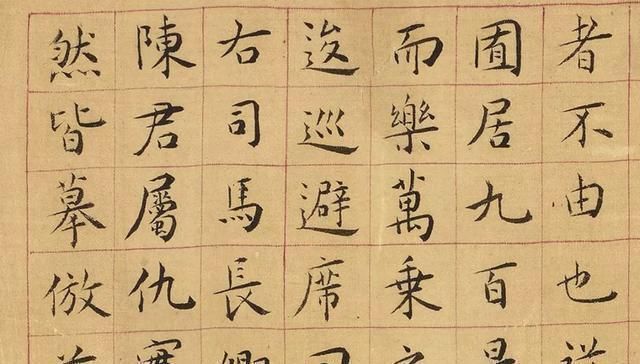 者不由也
囿居九百
而樂萬乘
逡巡避席
右司馬長卿
陳君屬仇
然皆摹倣